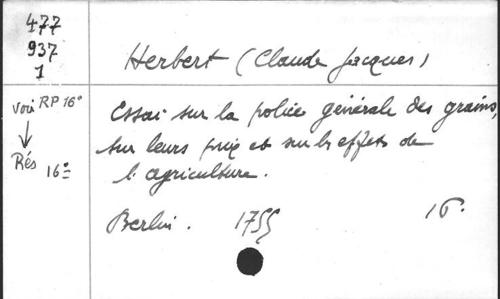 477
937
1
Herbert (Claude Jacques)
voir RP 16°
Rés
16°
Essai sur la police générale des grains,
sur leurs prix et sur les effets de
l'agriculture.
Berlin. 1755 16.